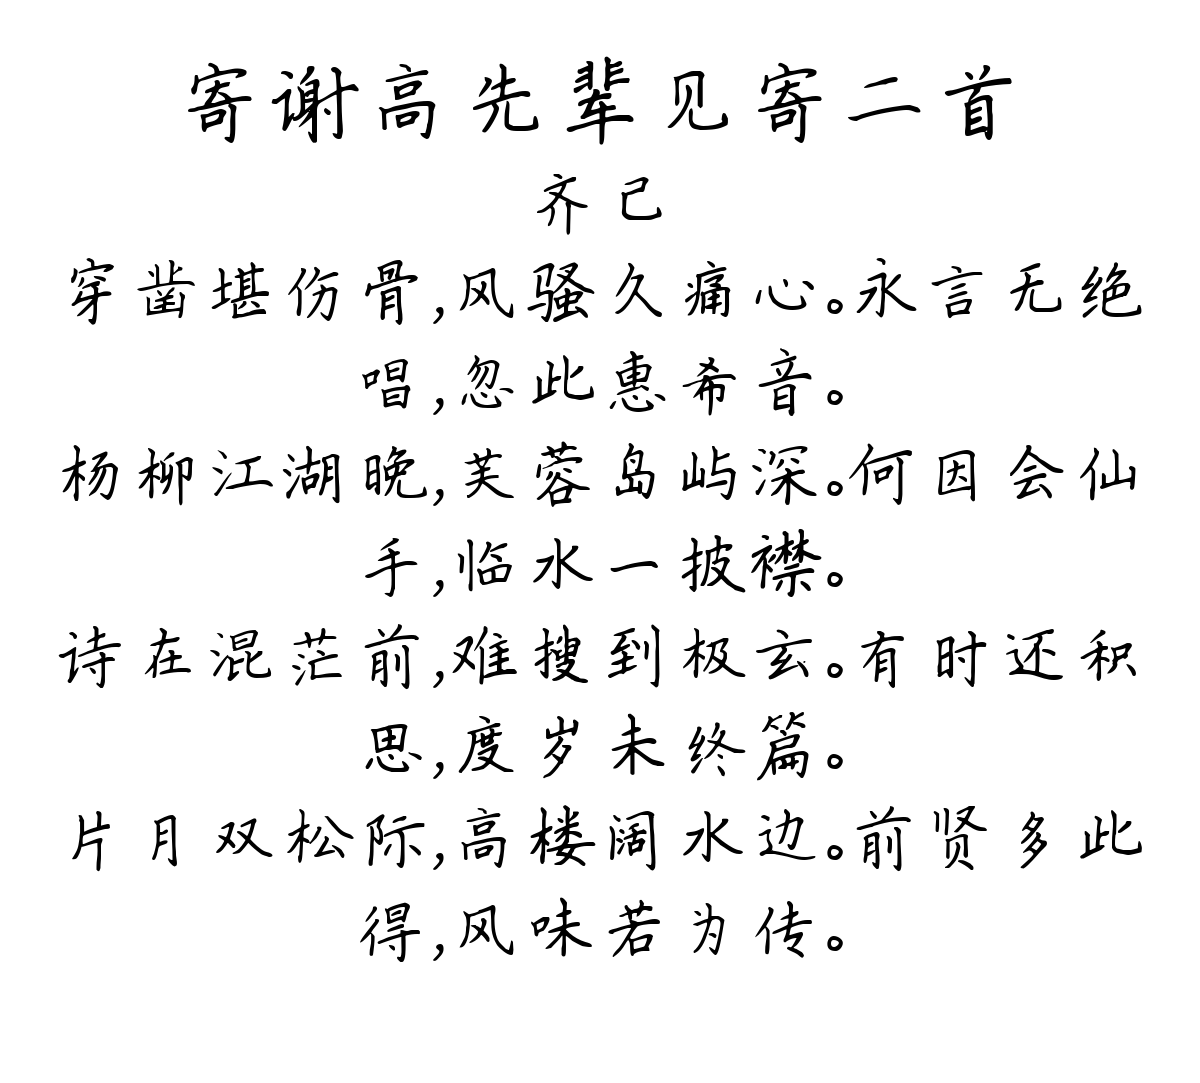 寄谢高先辈见寄二首
齐己
穿凿堪伤骨,风骚久痛心。永言无绝
唱,忽此惠希音。
杨柳江湖晚,芙蓉岛屿深。何因会仙
手,临水一披襟。
诗在混茫前,难搜到极玄。有时还积
思,度岁未终篇。
片月双松际,高楼阔水边。前贤多此
得,风味若为传。